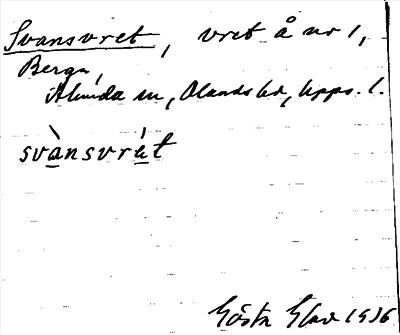 Svansvret, vret å nr 1,
Berga,
Almunda sn, Olands hd, Upps. l.
svànsvrét
Gösta Elav 1936